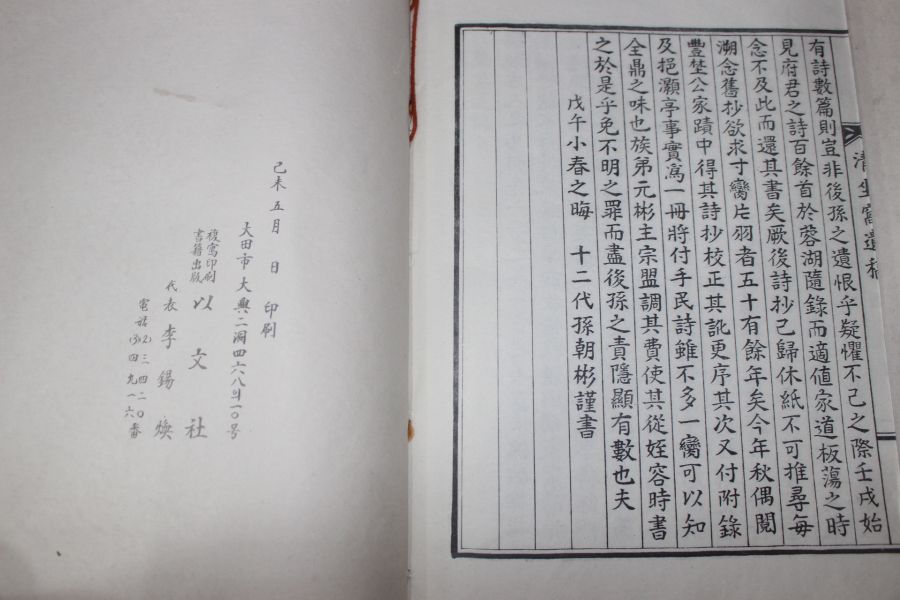 清坐窩遺稿
有詩數篇則豈非後孫之遺恨乎疑懼不已之際壬戌始
見府君之詩百餘首於蓉湖隨錄而適値家道板蕩之時
念不及此而還其書矣厥後詩抄已歸休紙不可推尋每
溯念舊抄欲求寸鸞片羽者五十有餘年矣今年秋偶閱
豊埜公家蹟中得其詩抄校正其訛更序其次又付附錄
及挹灝亭事實寫一冊將付手民詩雖不多一鸞可以知
全鼎之味也族弟元彬主宗盟調其費使其從姪容時書
之於是乎免不明之罪而盡後孫之責隱顯有數也夫
戊午小春之晦 十二代孫朝彬謹書
己未五月 日 印刷
大田市大興二洞四六八의一〇号
複寫印刷
書籍出版
以文社
代表 李錫煥
電話(2)三四二〇番
(3)四九一六番